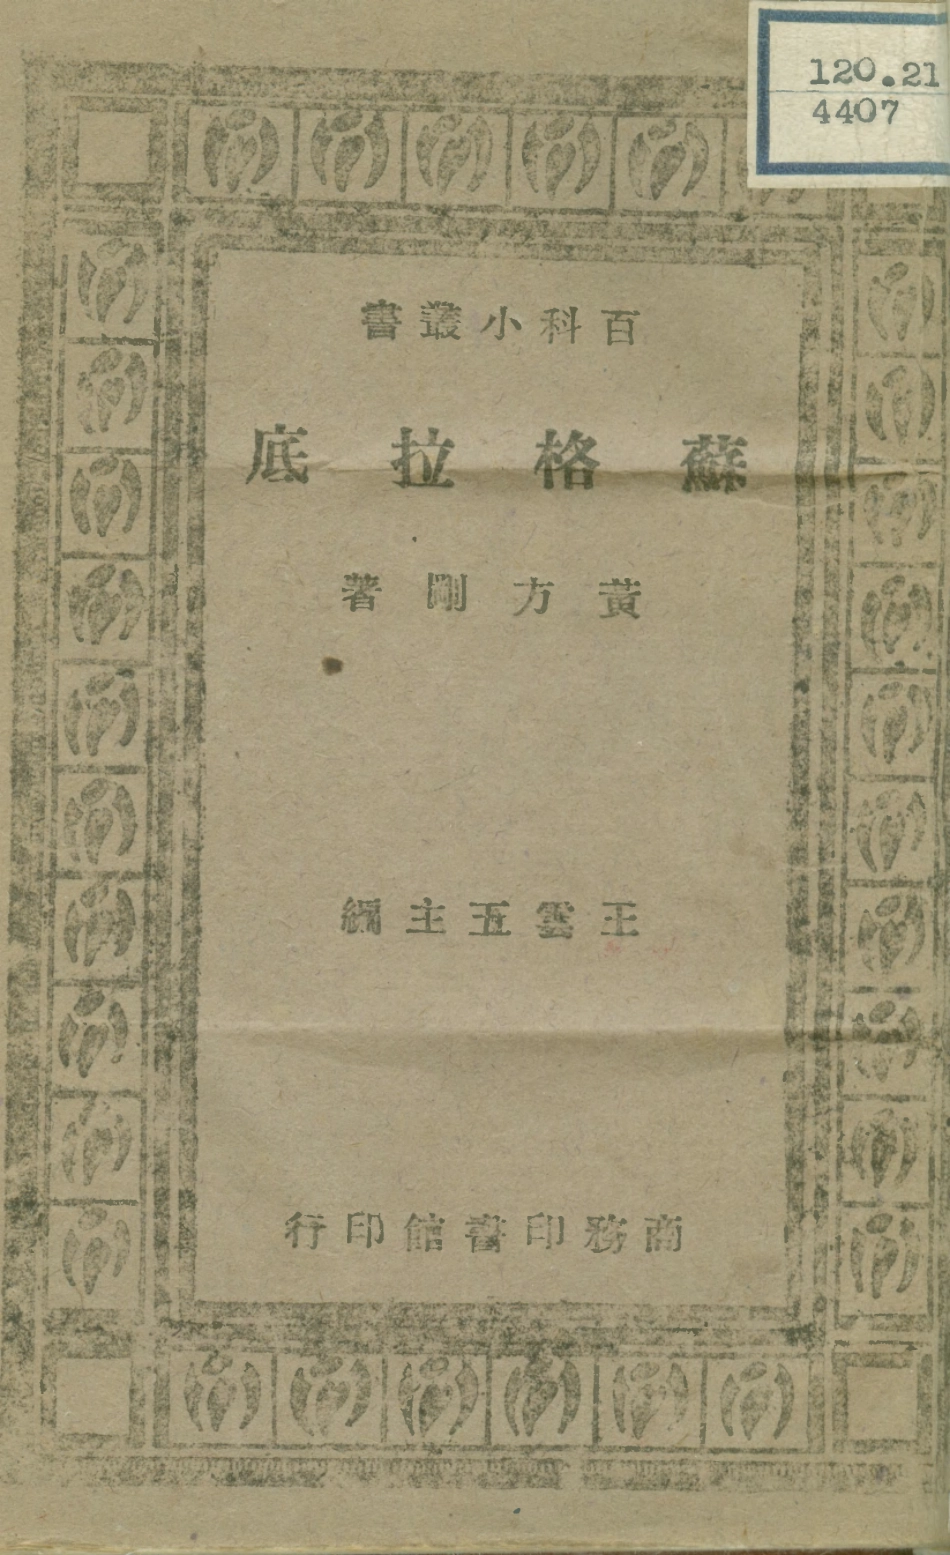 120.21
4407
百科小叢書
蘇格拉底
黃方剛著
王雲五主編
商務印書館印行